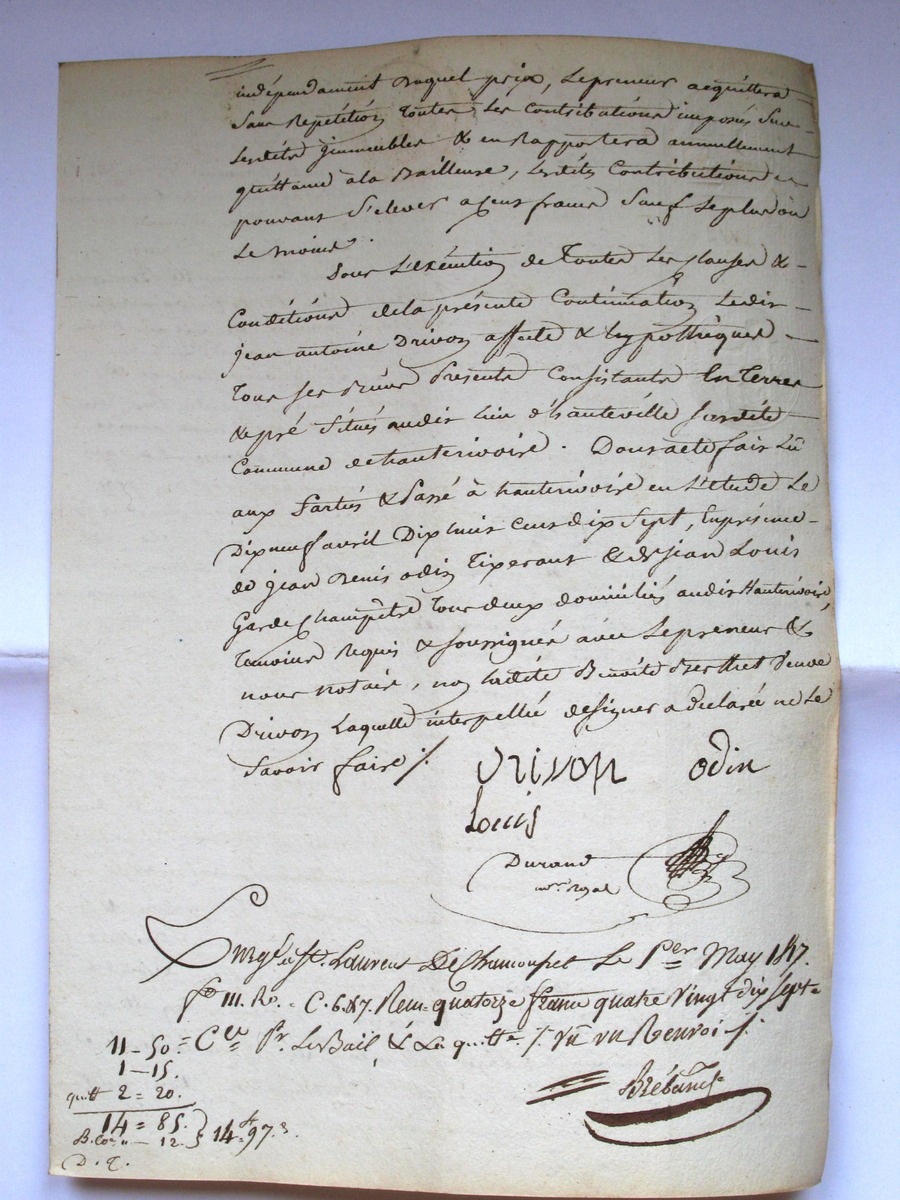 indépendament duquel prix, Le preneur acquittera
Sans Repétition Toutes Les Contributions imposés Sur
Lesdits jmmeubles & en Rapportera annuellement
quittance à la Bailleuse, Lesdites Contributions
pouvant S'elever a Cent francs Sauf Le plus ou
Le moins.
Pour L'exécution de Toutes Les Clauses &
Conditions de la présente Continuation Ledit
jean antoine Drivon affecte & hypothèque
Tous ses Biens Présents Consistants En Terres
& pré Situés audit Lieu d'hauteville Susdite
Commune de hauterivoire. Dont acte fait Lu
aux Parties & Passé à hauterivoire en L'etude Le
Dix neuf avril Dix huit Cent dix Sept, En présence
de jean Denis odin Tixerant & de jean Louis
Garde Champêtre Tous deux domiciliés audit Hauterivoire,
Temoins Requis & soussignés avec Le preneur &
nous notaire, non Ladite Benoite Berthet Veuve
Drivon Laquelle interpellée de signer a Déclarée ne Le
Savoir faire /.
Drivon odin
Louis
Durand
nre. Royal
Enregé. à St. Laurent De Chamousset Le 1er May 1817.
fo. 111. Ro. C. 6. & 7. Reçu quatorze francs quatre Vingt dix Sept
11-50 = Ces Pr. Le Bail & La quittce /. Vu un Renvoi /.
1-15.
quitt 2=20.
14=85.
B. Con. " — 12. } 14f 97c.
D. q.